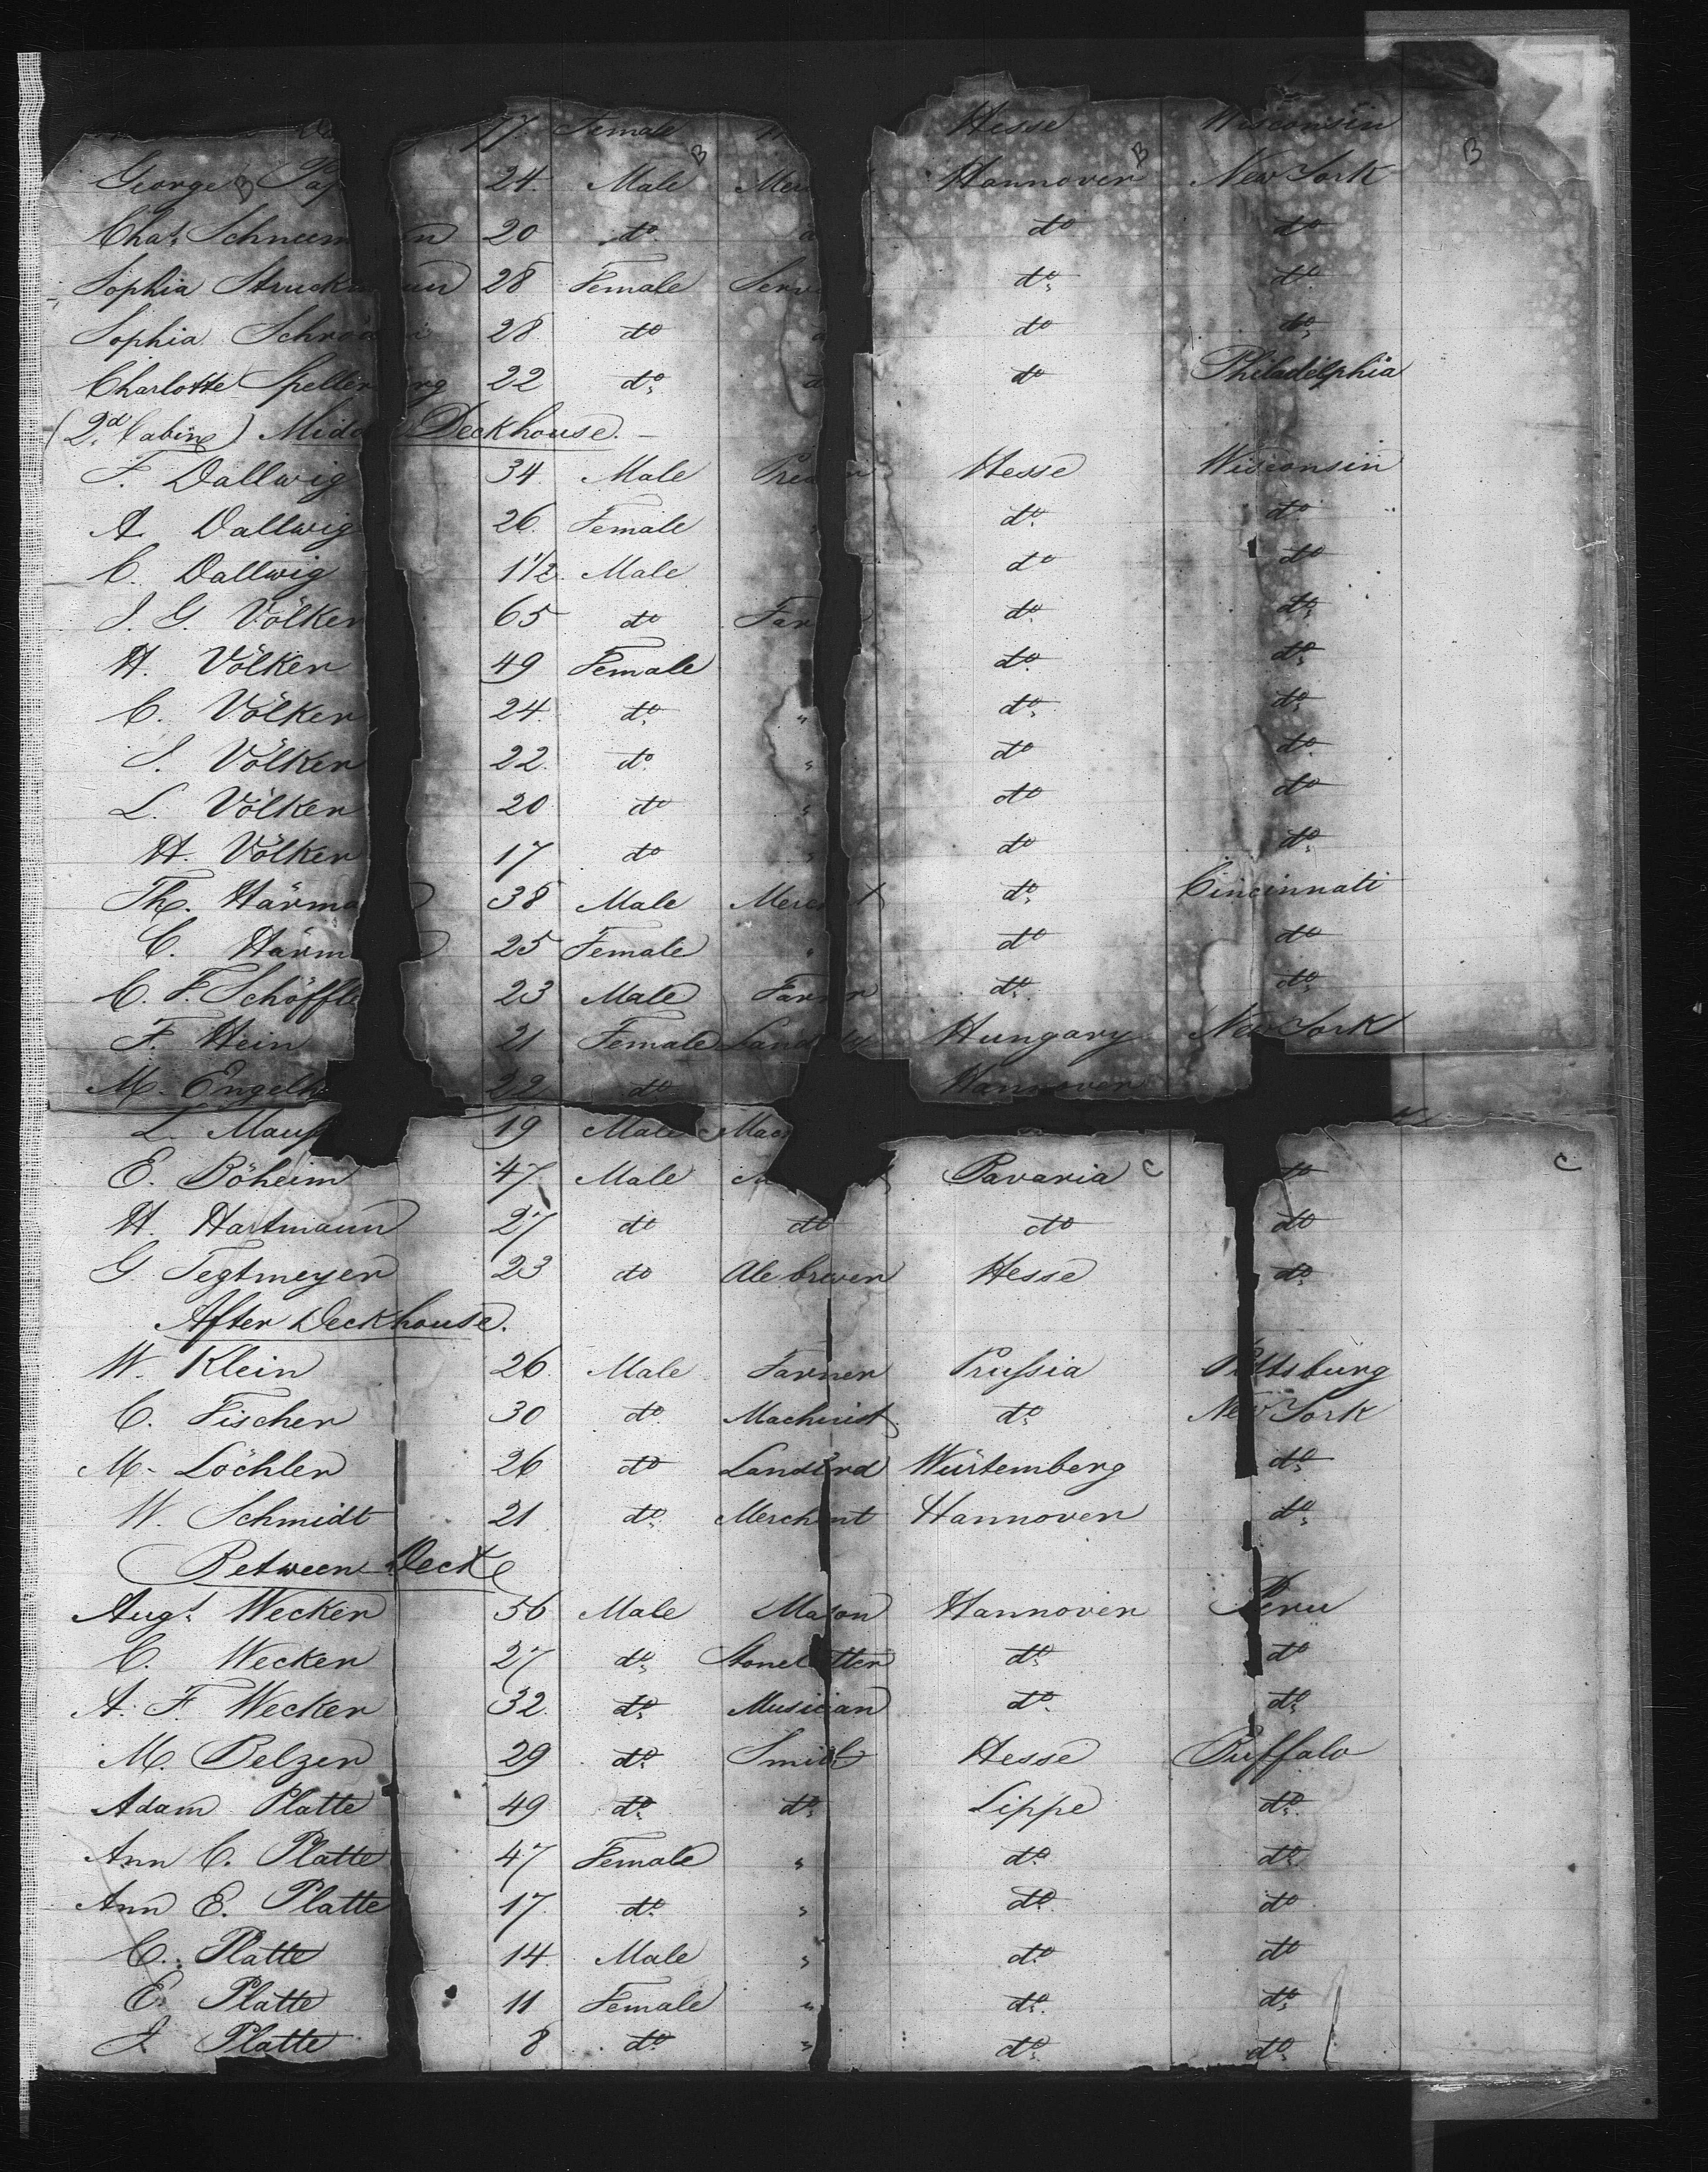 17. Female Hesse Wisconsin
B B B
George 24. Male Hannover New York
B
Chas. 20 do. do do
Sophia 28 Female do. do.
Sophia 28 do do do.
Charlotte 22 do. do Philadelphia
(2d. Cabin) Deckhouse.
F. Dallwig 34. Male Hesse Wisconsin
A. Dallwig 26. Female do. do.
C. Dallwig 1 1/2. Male do do
J. G. Völker 65 do do. do.
H. Völker 49 Female do. do.
C. Völker 24. do. " do. do.
S. Völker 22. do. " do do.
L. Völker 20 do " do do
H. Völker 17 do " do do.
Th. 38 Male do. Cincinnati
C. 25 Female " do do
C. F. 23 Male do. do.
F. Hein 21 Female Hungary New York
M. 22 do Hannover
L. 19 Male
C C
E. Böheim 47 Male Bavaria do
H. Hartmann 27 do do do do
G. Tegtmeyer 23 do Ale brewer Hesse do.
After Deckhouse.
W. Klein 26. Male Farmer Prussia Pittsburg
C. Fischer 30 do. Machinist do. New York
M. Löchler 26 do Landlord Würtemberg do.
W. Schmidt 21 do. Merchant Hannover do.
Between Deck
Augt. Wecker 56 Male Mason Hannover Peru
C. Wecker 27 do. Stonecutter do. do
A. F. Wecker 32. do. Musician do. do.
M. Belzer 29 do. Smith Hesse Buffalo
Adam Platte 49 do. do. Lippe do.
Ann C. Platte 47 Female " do. do.
Ann E. Platte 17. do. " do. do
C. Platte 14. Male " do. do
E. Platte 11 Female " do. do.
J. Platte 8 do " do. do.